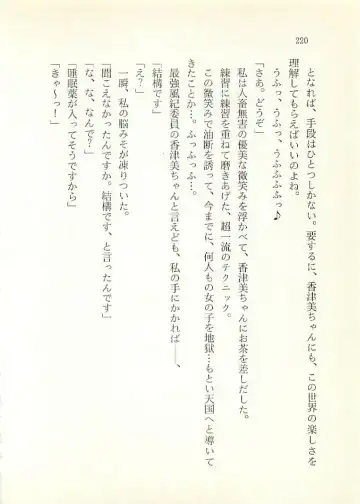 220
となれば、手段はひとつしかない。要するに、香津美ちゃんにも、この世界の楽しさを
理解してもらえばいいのよね。
うふっ、うふっ、うふふふっ♪
「さあ。どうぞ」
私は人畜無害の優美な微笑みを浮かべて、香津美ちゃんにお茶を差しだした。
練習に練習を重ねて磨きあげた、超一流のテクニック。
この微笑みで油断を誘って、今までに、何人もの女の子を地獄…もとい天国へと導いて
きたことか…。ふっふっふ…。
最強風紀委員の香津美ちゃんと言えども、私の手にかかれば――、
「結構です」
「え?」
一瞬、私の脳みそが凍りついた。
「聞こえなかったんですか。結構です、と言ったんです」
「な、な、なんで?」
「睡眠薬が入ってそうですから」
「きゃ〜っ!」